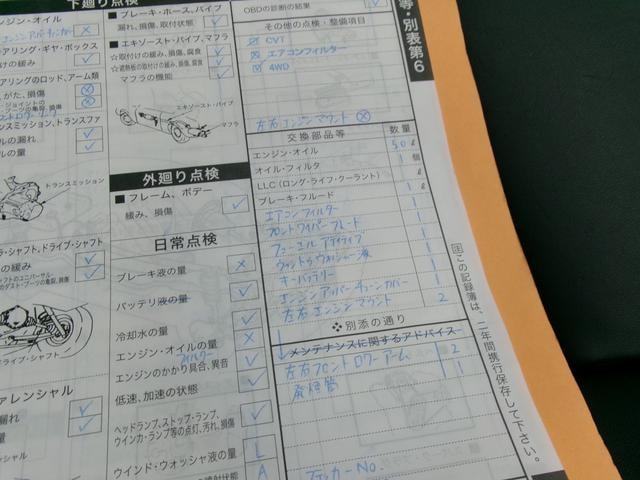 下廻り点検
ンジン・オイル
エンジンアッパーチェンカバー
アリング・ギヤ・ボックス
けの緩み
アリングのロッド、アーム類
、がた、損傷
ジョイントの
ブーツの亀裂、損傷
コントロールリンク
ンスミッション、トランスファ
ルの漏れ
ルの量
トランスミッション
ラ・シャフト、ドライブ・シャフト
の緩み
ドライブ・シャフト
ァレンシャル
漏れ
の量
■ブレーキ・ホース、パイプ
漏れ、損傷、取付状態
■エキゾースト・パイプ、マフラ
☆取付けの緩み、損傷、腐食
☆遮熱板の取付けの緩み、損傷、腐食
マフラの機能
エキゾースト・パイプ
マフラ
外廻り点検
■フレーム、ボデー
緩み、損傷
日常点検
ブレーキ液の量
バッテリ液の量
冷却水の量
エンジン・オイルの量
エンジンのかかり具合、異音
低速、加速の状態
ヘッドランプ、ストップ・ランプ、
ウインカ・ランプ等の点灯、汚れ、損傷
ウインド・ウォッシャ液の量 L
噴射状態 A
OBDの診断の結果
その他の点検・整備項目
CVT
エアコンフィルター
4WD
左右エンジンマウント
交換部品等 数量
エンジン・オイル 5.0 ℓ
オイル・フィルタ 1 個
LLC(ロング・ライフ・クーラント) ℓ
ブレーキ・フルード 1 ℓ
エアコンフィルター 1
フロントワイパーブレード 1
フューエルアディティブ 1
ウィンドウウォッシャー液 1
キーバッテリー 1
エンジンアッパーチェンカバー 1
左右エンジンマウント 2
❖別添の通り
メンテナンスに関するアドバイス
左右フロントロワーアーム 2
発煙筒 1
ステッカーNo.
等・別表第6
注この記録簿は、二年間携行保存して下さい。